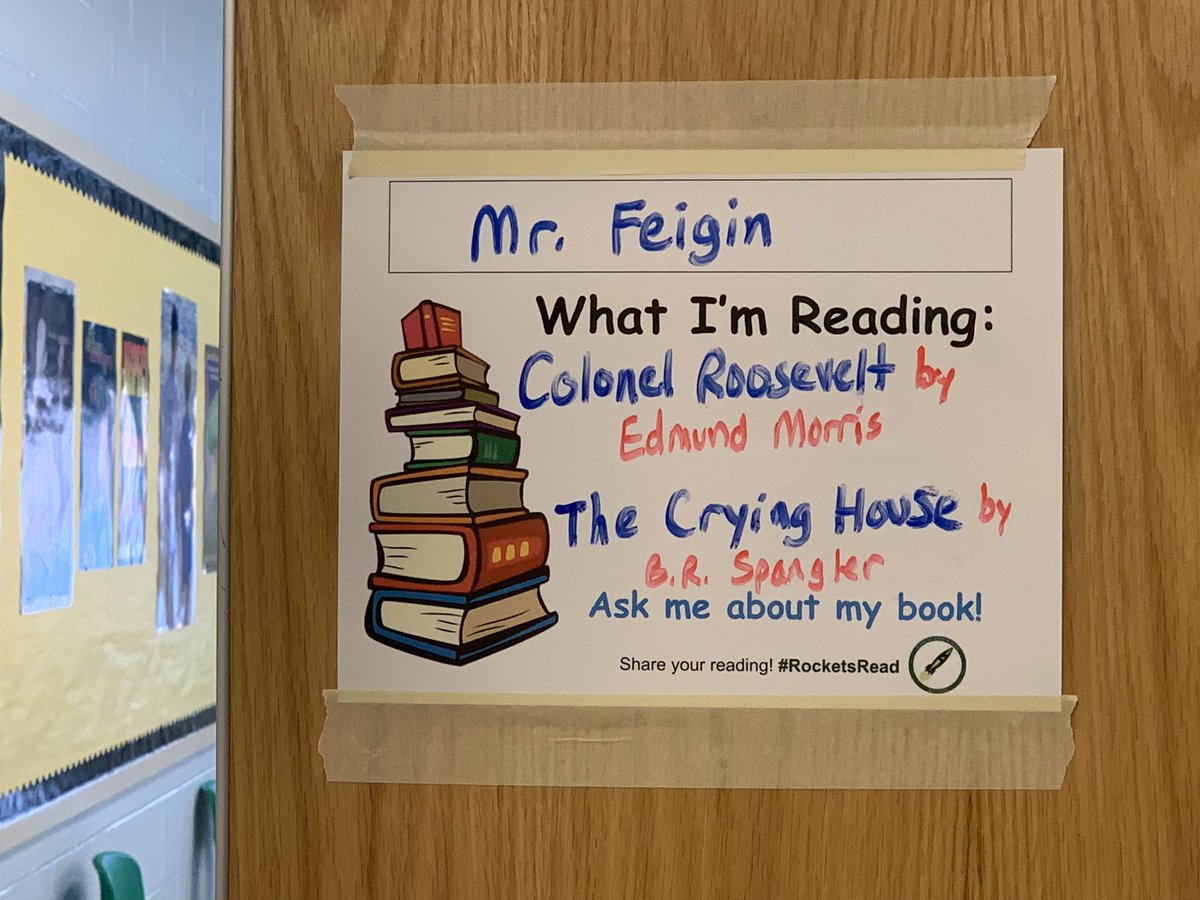 Mr. Feigin
What I'm Reading:
Colonel Roosevelt by
Edmund Morris
The Crying House by
B.R. Spangler
Ask me about my book!
Share your reading! #RocketsRead